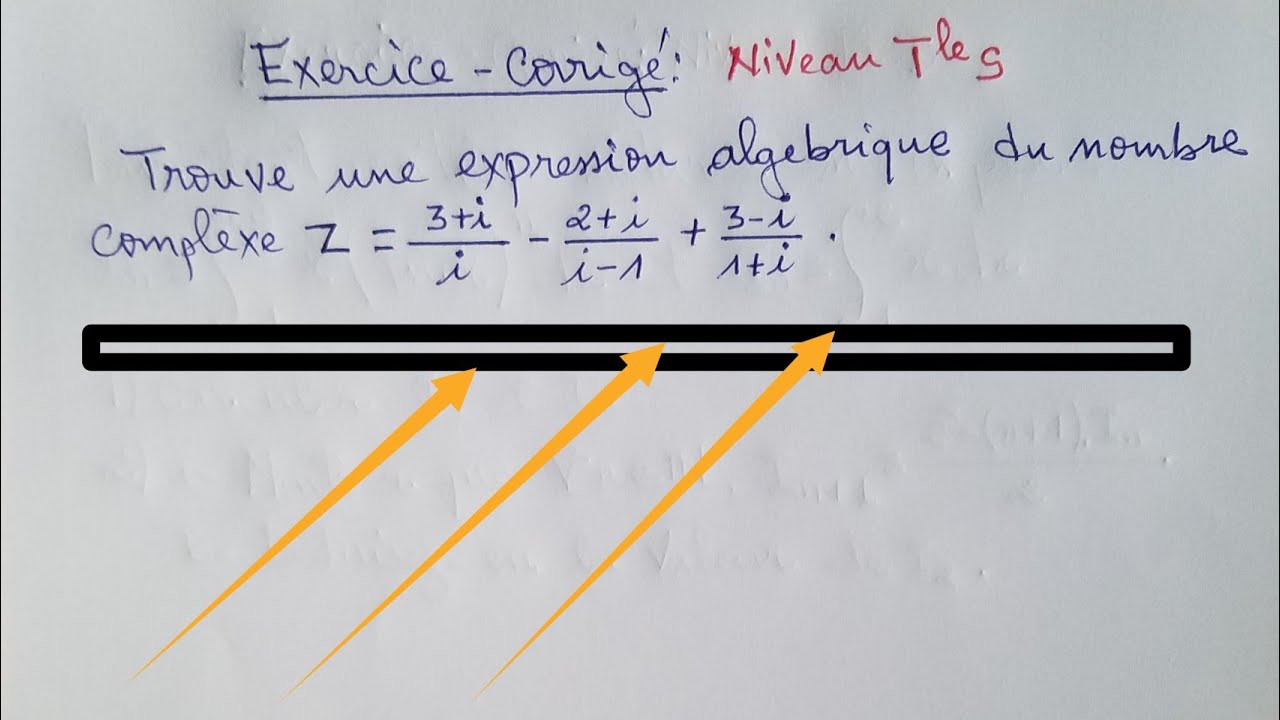 Exercice - Corrigé: Niveau Tle S
Trouve une expression algebrique du nombre
complèxe Z = \frac{3+i}{i} - \frac{2+i}{i-1} + \frac{3-i}{1+i}.